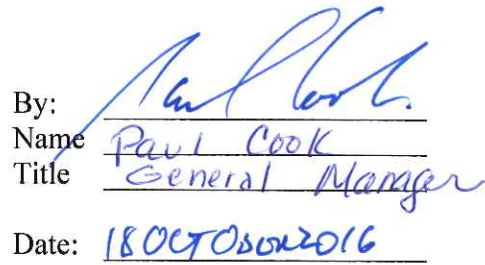 By: Paul Cook
Name Paul Cook
Title General Manager
Date: 18 OCTOBER 2016